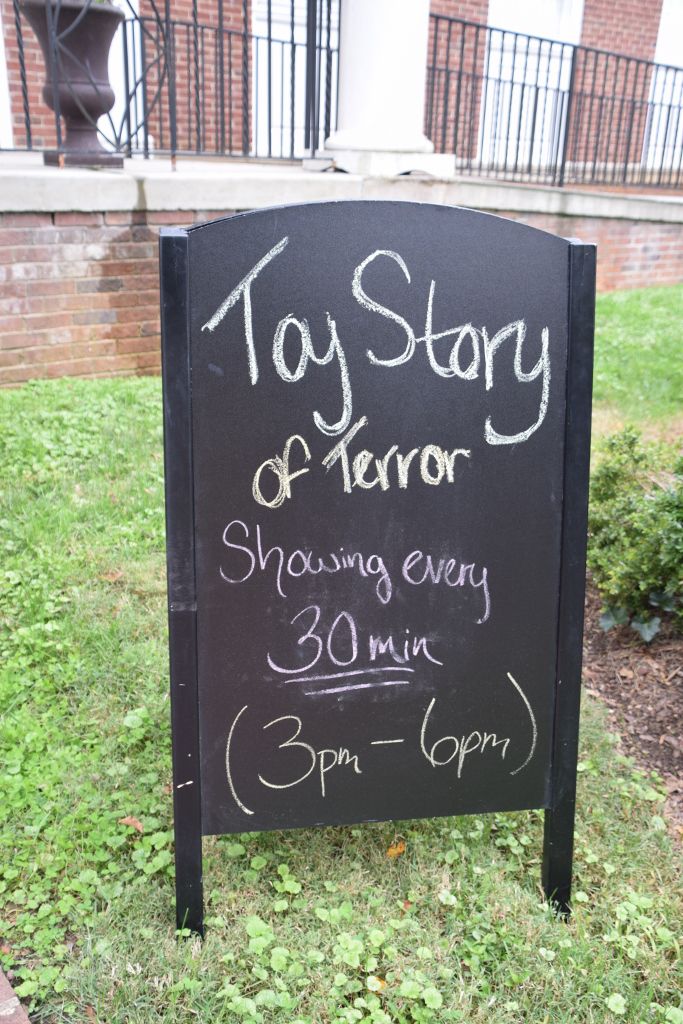 Toy Story
of Terror
Showing every
30 min
(3pm - 6pm)